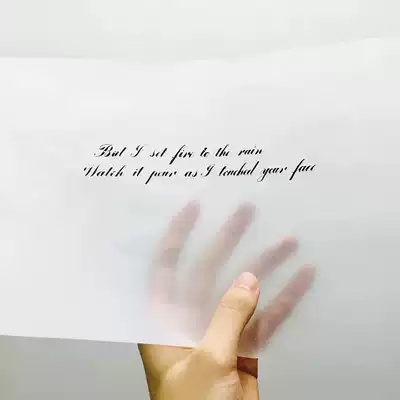 But I set fire to the rain
Watch it pour as I touched your face